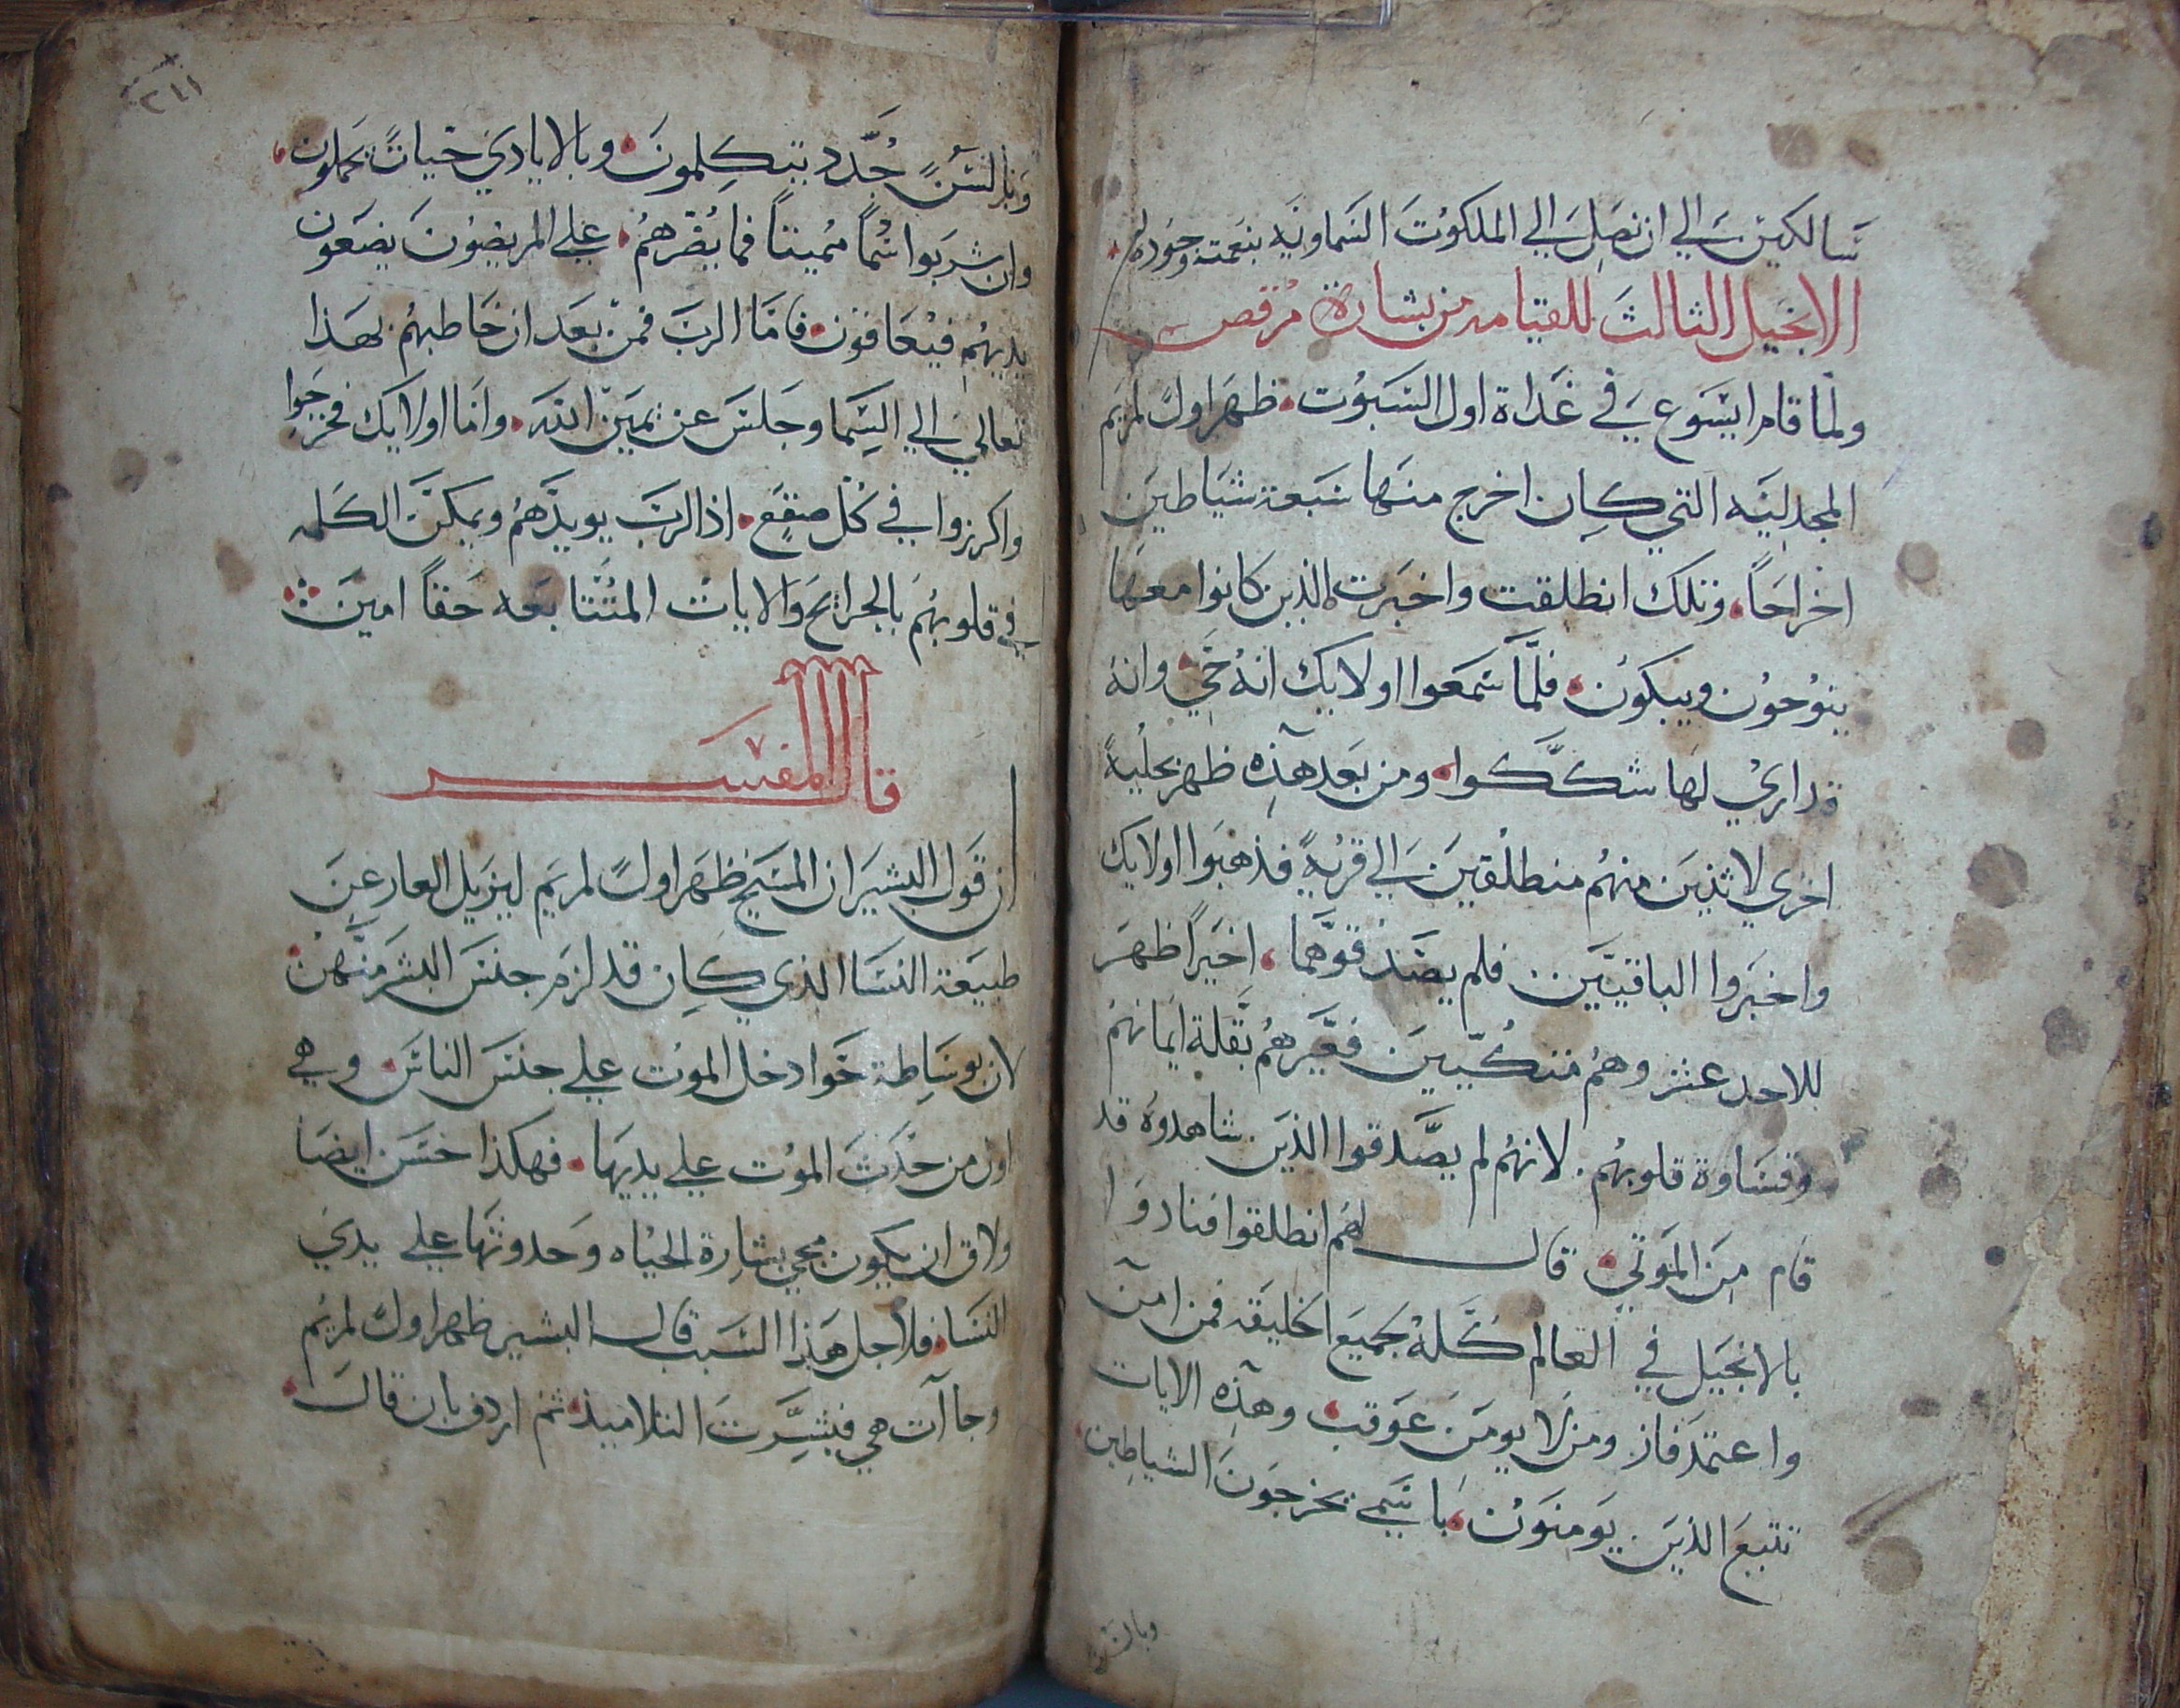 سالكين الي ان نصل الي الملكوت السماويه بنعمته وجوده
الانجيل الثالث للقيامه من بشارة مرقص
ولما قام ايسوع في غداة اول السبوت ظهر اولاً لمريم
المجدليه التي كان اخرج منها سبعة شياطين
اخراجاً وتلك انطلقت واخبرت الذين كانوا معها
ينوحون ويبكون فلما سمعوا اولايك انه حي وانه
قد اري لها شككوا ومن بعد هذه ظهر بحلية
اخري لاثنين منهم منطلقين الي قرية فذهبوا اولايك
واخبروا الباقيين فلم يصدقوهما اخيراً ظهر
للاحد عشر وهم متكيين فعيرهم بقلة ايمانهم
وقساوة قلوبهم لانهم لم يصدقوا الذين شاهدوه قد
قام من الموتي قال لهم انطلقوا فنادوا
بالانجيل في العالم كله لجميع الخليقه فمن امن
واعتمد فاز ومن لا يومن عوقب وهذه الايات
تتبع الذين يومنون باسمي يخرجون الشياطين
وبالسن
٢٤١
وبالسن جدد يتكلمون وبالايادي حيات يحملون
وان شربوا سماً مميتاً فما يضرهم علي المريضون يضعون
يديهم فيعافون فاما الرب فمن بعد ان خاطبهم بهذا
تعالي الي السما وجلس عن يمين الله واما اولايك فخرجوا
واكرزوا في كل صقع اذ الرب يويدهم ويمكن الكلمه
في قلوبهم بالجرايح والايات المتتابعه حقاً امين
قال المفسر
ان قول البشير ان المسيح ظهر اولاً لمريم ليزيل العار عن
طبيعة النسا الذي كان قد لزم جنس البشر منهن
لان بوساطة حوا دخل الموت علي جنس الناس وهي
اول من حدث الموت علي يديها فهكذا حسن ايضا
ولاق ان يكون مجي بشارة الحياه وحدوثها علي يدي
النسا فلاجل هذا السبب قال البشير ظهر اولاً لمريم
وجاآت هي فبشرت التلاميذ ثم اردف بان قال